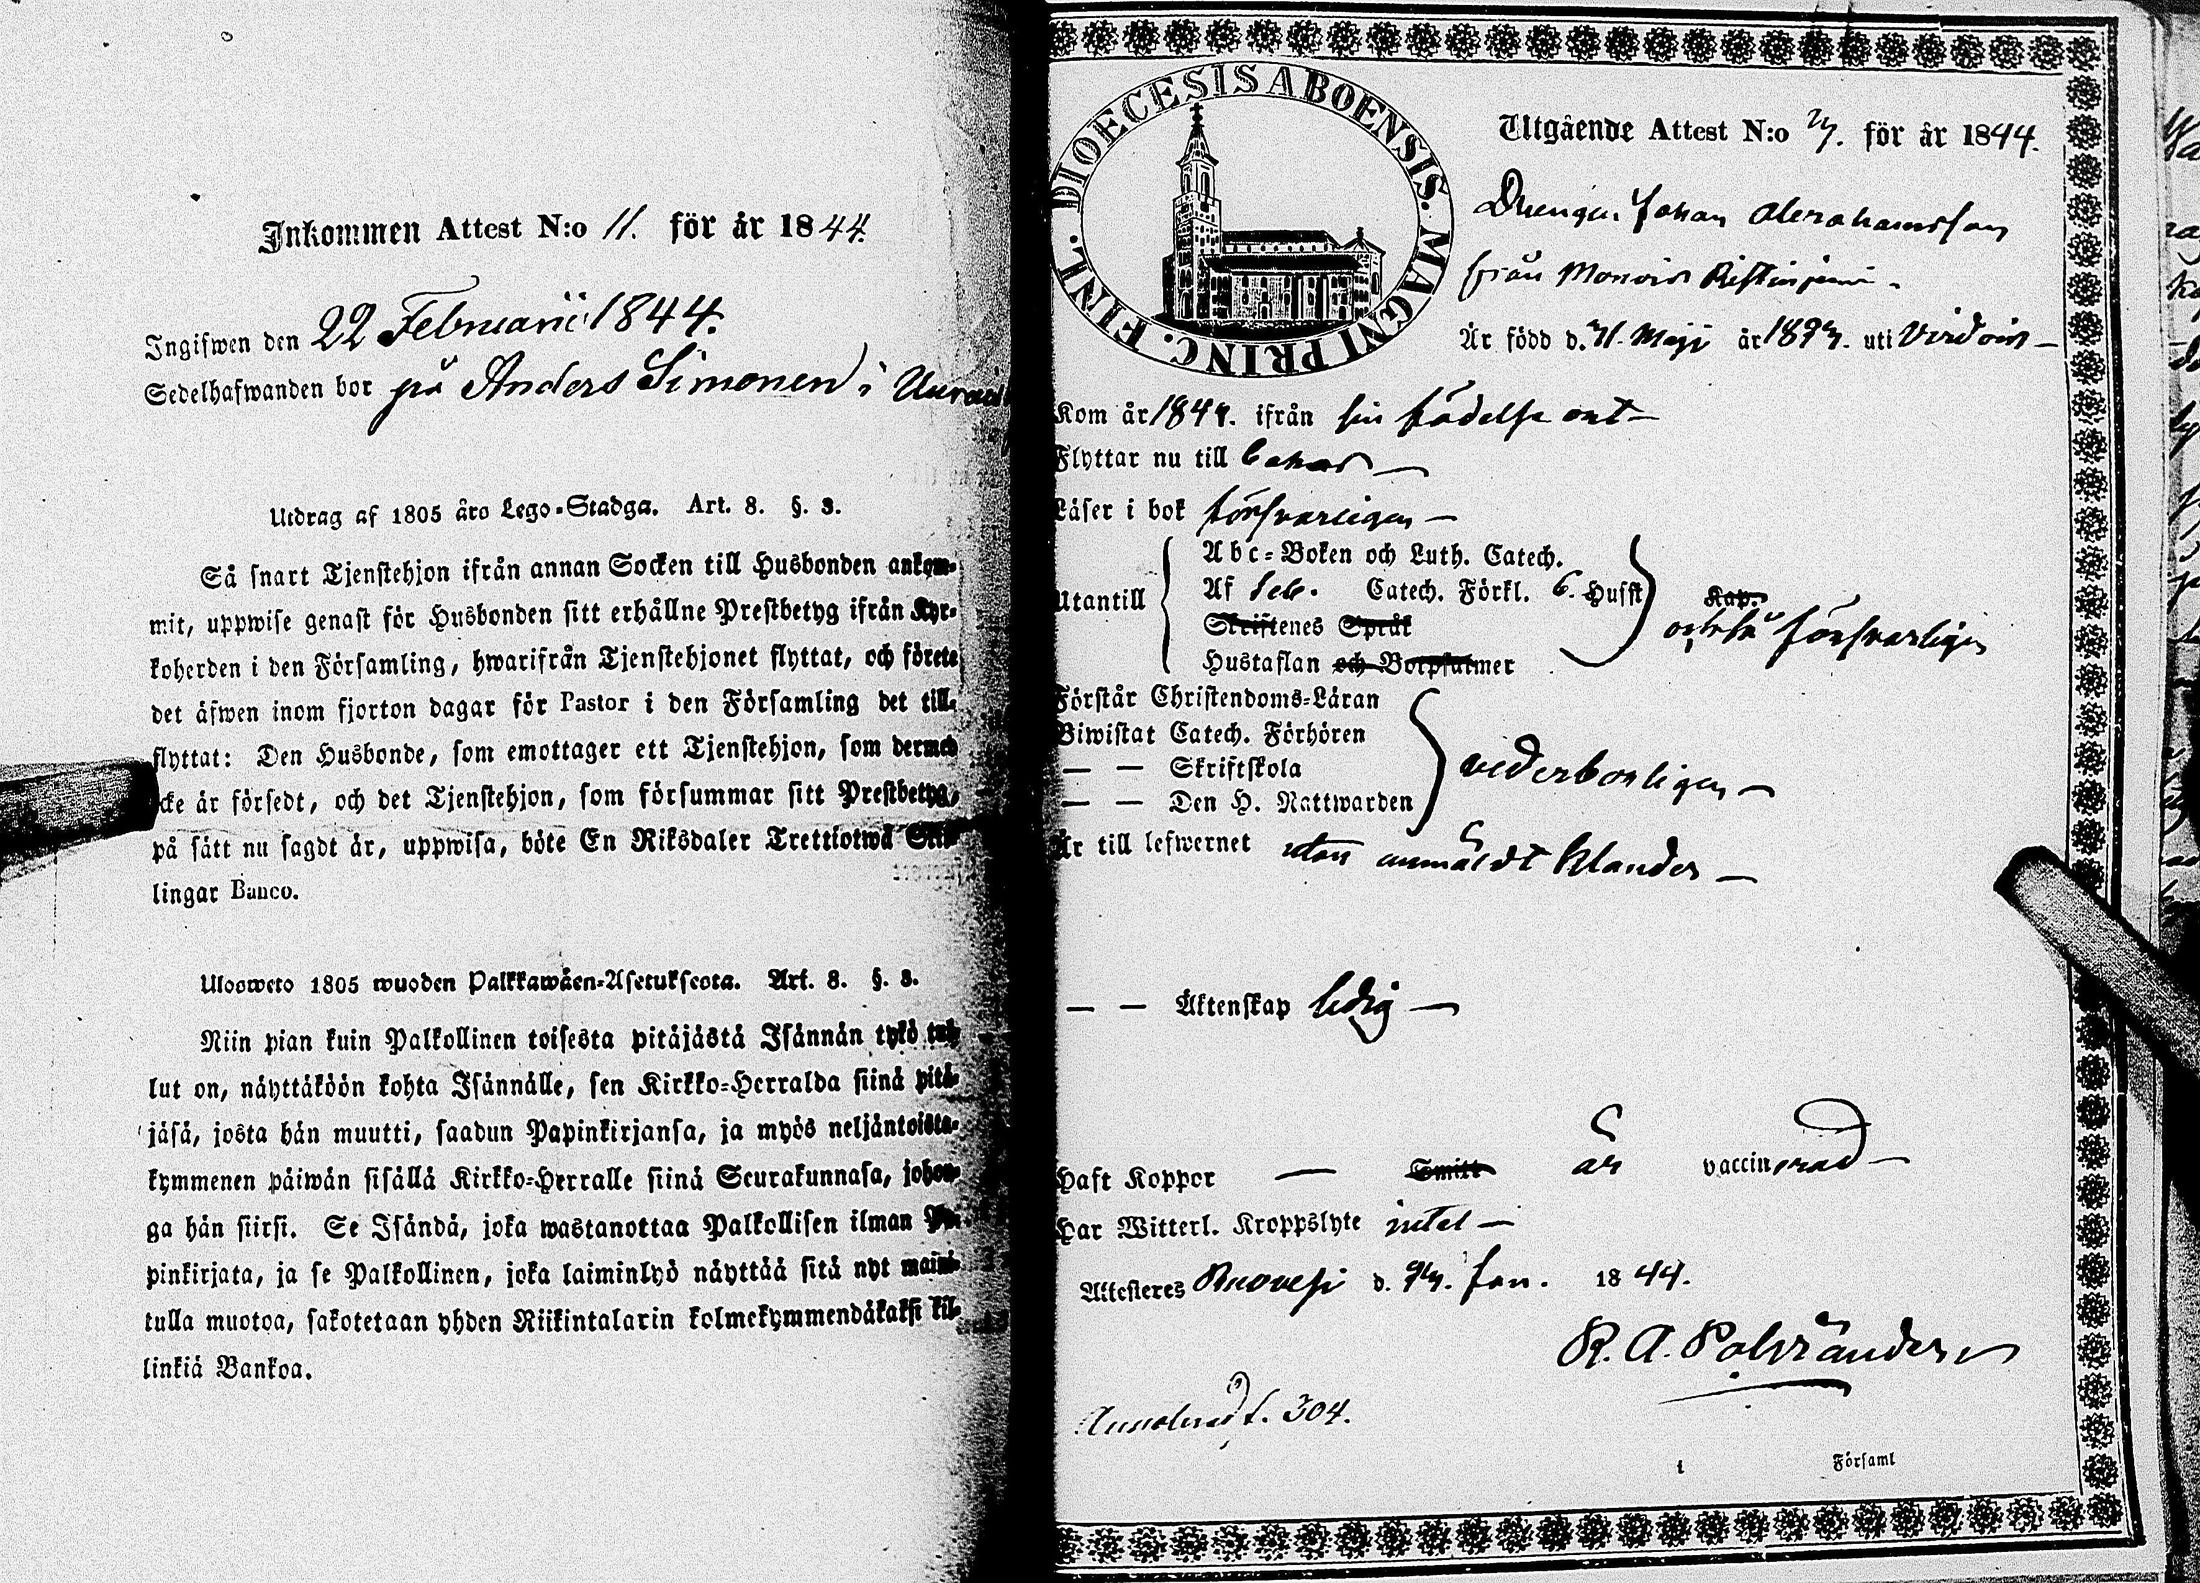 Inkommen Attest N:o 11. för år 1844.
Ingifwen den 22 Februarii 1844.
Sedelhafwanden bor på Anders Simonen i
Utdrag af 1805 års Lego-Stadga. Art. 8. §. 3.
Så snart Tjenstehjon ifrån annan Socken till Husbonden ankom-
mit, uppwise genast för Husbonden sitt erhållne Prestbetyg ifrån Kyr-
koherden i den Församling, hwarifrån Tjenstehjonet flyttat, och förete
det äfwen inom fjorton dagar för Pastor i den Församling det till-
flyttat: Den Husbonde, som emottager ett Tjenstehjon, som dermed
icke är försedt, och det Tjenstehjon, som försummar sitt Prestbetyg,
på sätt nu sagdt är, uppwisa, böte En Riksdaler Trettiotwå Skil-
lingar Banco.
Ulosweto 1805 wuoden Palkkawäen-Asetuksesta. Art. 8. §. 3.
Niin pian kuin Palkollinen toisesta pitäjästä Isännän tykö tul-
lut on, näyttäköön kohta Isännälle, sen Kirkko-Herralda siinä pitä-
jäsä, josta hän muutti, saadun Papinkirjansa, ja myös neljäntoista-
kymmenen päiwän sisällä Kirkko-Herralle siinä Seurakunnasa, johon-
ga hän siirsi. Se Isändä, joka wastanottaa Palkollisen ilman Pa-
pinkirjata, ja se Palkollinen, joka laiminlyö näyttää sitä nyt maini-
tulla muotoa, sakotetaan yhden Riikintalarin kolmekymmendäkaksi kil-
linkiä Bankoa.
DIOECESIS ABOENSIS. MAGNI PRINC. FINL.
Utgående Attest N:o 7. för år 1844.
Drengen Johan Abrahamsson
från Monois Ristinjemi
Är född d. Maji år uti Virdois
Kom år ifrån sin födelse ort
Flyttar nu till
Läser i bok försvarligen
Utantill
Abc-Boken och Luth. Catech.
Af Seb. Catech. Förkl. 6. Husst Kap.
Skriftenes Språk
också försvarligen
Hustaflan och Botpsalmer
Förstår Christendoms-Läran
Biwistat Catech. Förhören
— — Skriftskola
vederborligen
— — Den H. Nattwarden
Är till lefwernet utan anmäldt klander
— — Äktenskap ledig
Haft Koppor — Smitt är vaccinerad
Har Witterl. Kroppslyte intet
Attesteres Ruovesi d. Jan. 1844.
R. A.
304.
i Församl